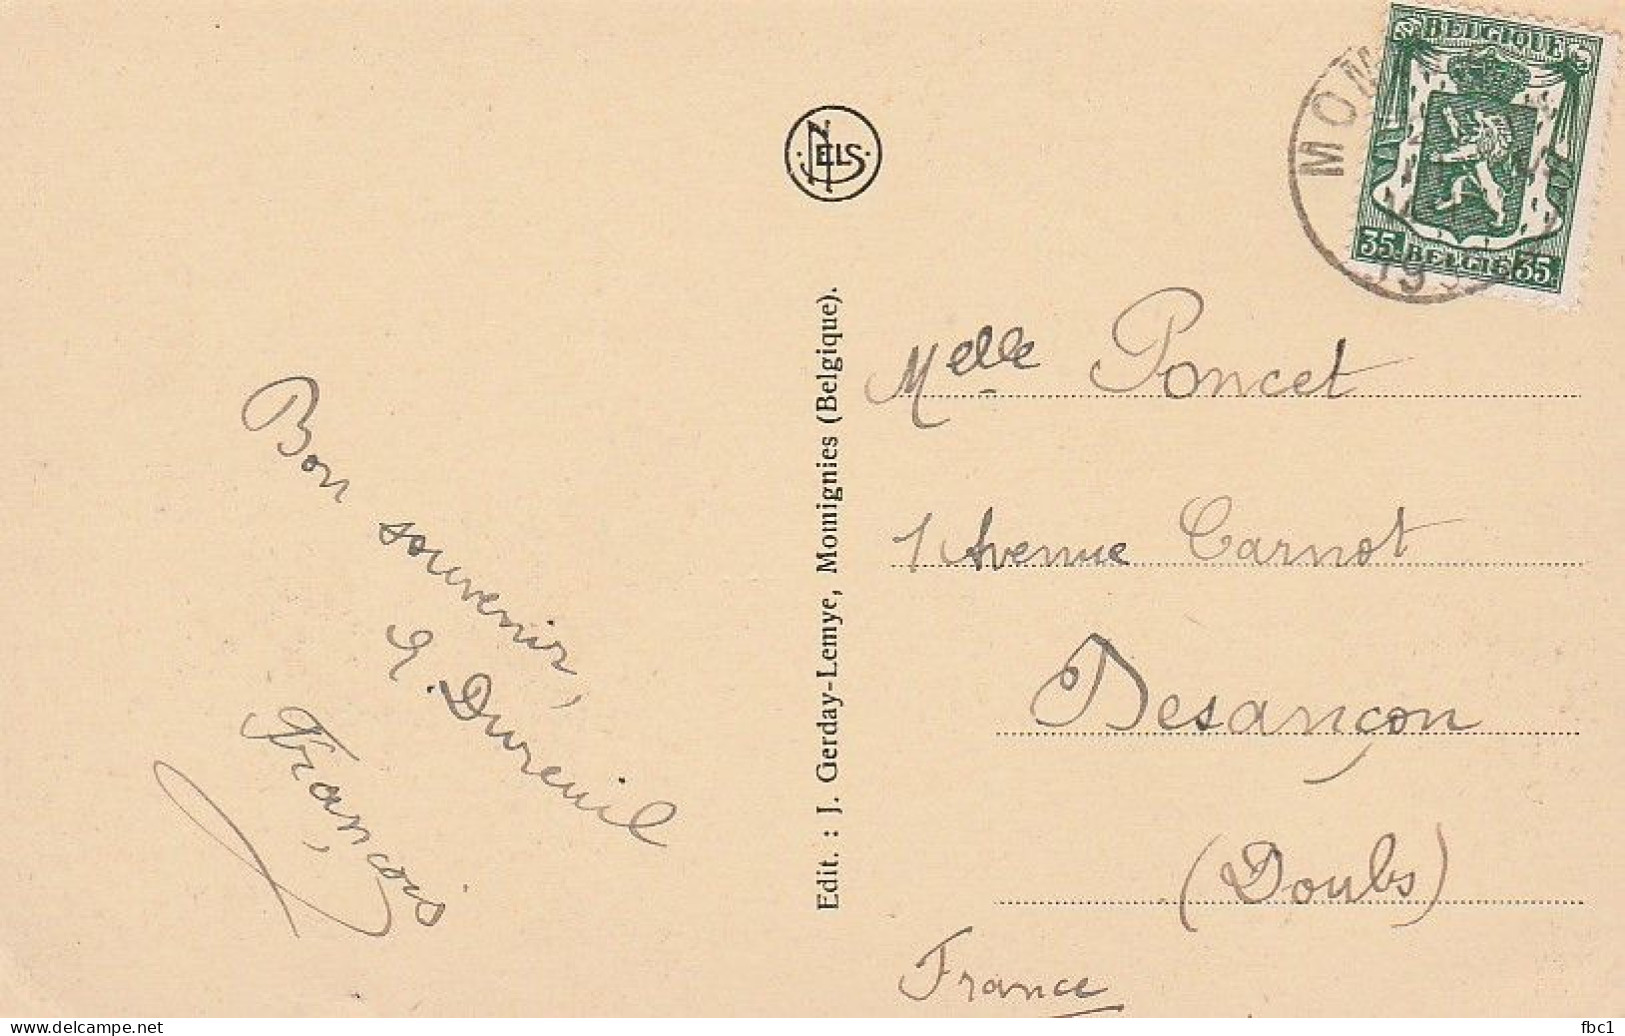 BELGIQUE
35 BELGIE 35
MOM
19
NELS
Bon souvenir,
Dureuil
François
Edit. : J. Gerday-Lemye, Momignies (Belgique).
Melle Poncet
1 Avenue Carnot
Besançon
(Doubs)
France
www.delcampe.net
fbc1